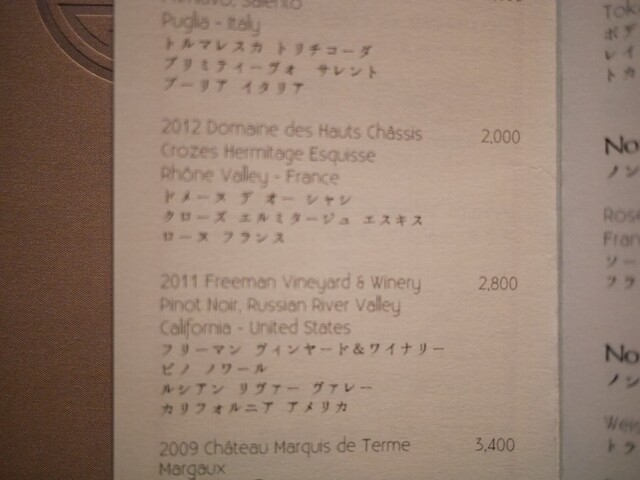 Salento
Puglia - Italy
トルマレスカ トリチコーダ
プリミティーヴォ サレント
プーリア イタリア
2012 Domaine des Hauts Châssis 2,000
Crozes Hermitage Esquisse
Rhône Valley - France
ドメーヌ デ オー シャシ
クローズ エルミタージュ エスキス
ローヌ フランス
2011 Freeman Vineyard & Winery 2,800
Pinot Noir, Russian River Valley
California - United States
フリーマン ヴィンヤード&ワイナリー
ピノ ノワール
ルシアン リヴァー ヴァレー
カリフォルニア アメリカ
2009 Château Marquis de Terme 3,400
Margaux